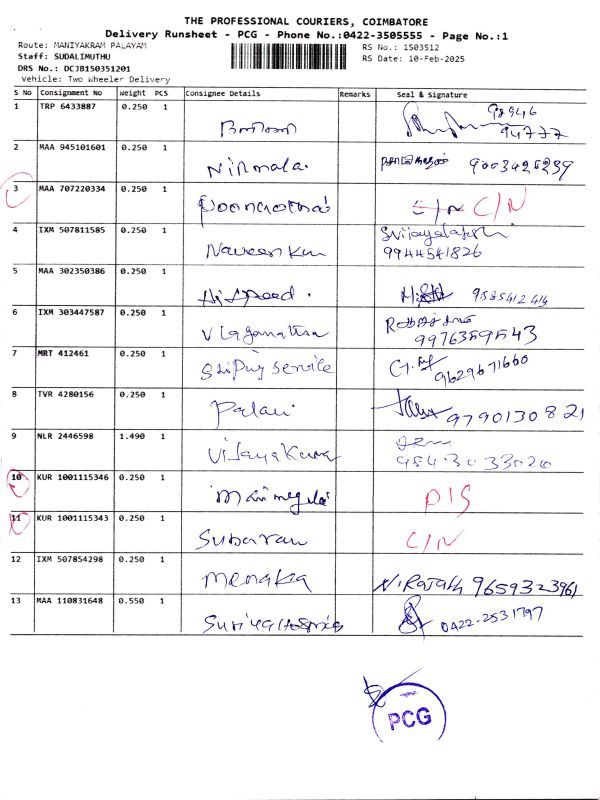 THE PROFESSIONAL COURIERS, COIMBATORE
Delivery Runsheet - PCG - Phone No.:0422-3505555 - Page No.:1
Route: MANIYAKRAM PALAYAM
RS No.: 1503512
Staff: SUDALIMUTHU
RS Date: 10-Feb-2025
DRS No.: DCJ8150351201
Vehicle: Two Wheeler Delivery
S No Consignment No Weight PCS Consignee Details Remarks Seal & Signature
1 TRP 6433887 0.250 1
94777
2 MAA 945101601 0.250 1 Nirmala. 9003425239
3 MAA 707220334 0.250 1 C/N C/N
4 IXM 507811585 0.250 1 Naveen Kum Svijayalakshmi
9944541826
5 MAA 302350386 0.250 1 Hispeed. 9585412414
6 IXM 303447587 0.250 1 V Laganatha
9976359543
7 MRT 412461 0.250 1 Service 9629671660
8 TVR 4280156 0.250 1 Palani 9790130821
9 NLR 2446598 1.490 1 Vijaya Kumar
9543033020
10 KUR 1001115346 0.250 1 manimegalai D/S
11 KUR 1001115343 0.250 1 Subaran C/N
12 IXM 507854298 0.250 1 Menaka N.Rajath 9659323961
13 MAA 110831648 0.550 1 0422-2531797
PCG